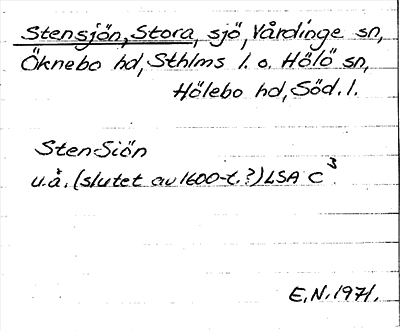 Stensjön, Stora, sjö, Vårdinge sn,
Öknebo hd, Sthlms l. o. Hölö sn,
Hölebo hd, Söd. l.
Sten-Siön
u.å. (slutet av 1600-t.?) LSA C³.
E.N. 1971.